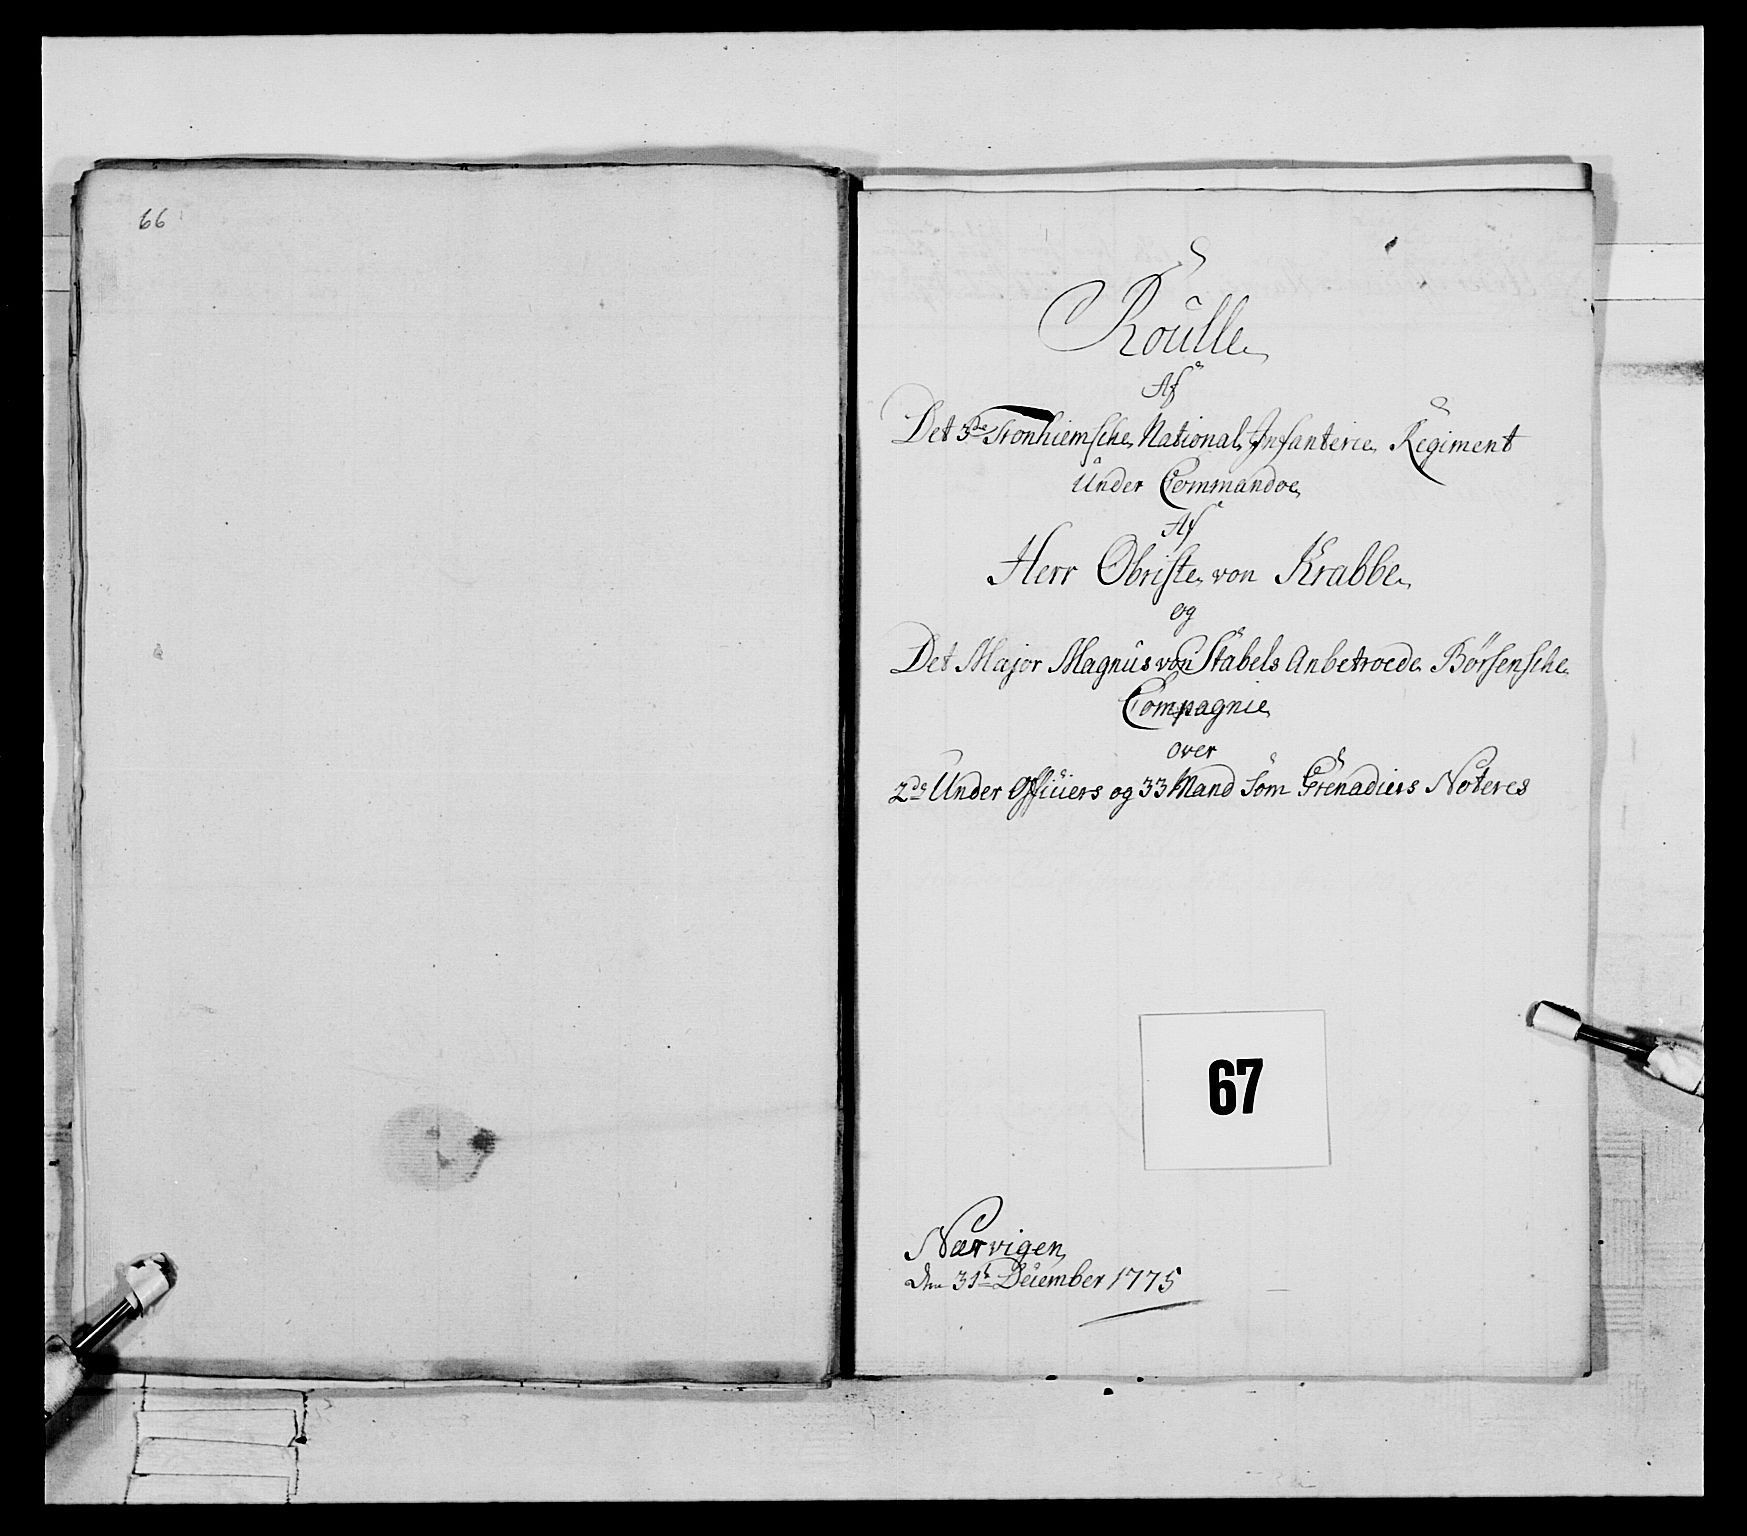 66
Roulle
Af
Det 3de Tronhiemsche National Infanterie Regiment
Under Commandoe
Af
Herr Obriste von Krabbe
og
Det Major Magnus von Stabels Anbetroede Börsensche
Compagnie
over
2de Under Officiers og 33 Mand Som Grenadiers Noteres
67
Nærvigen
den 31te December 1775